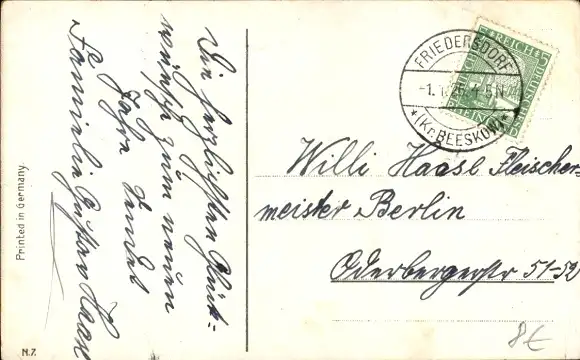 Die herzlichsten Glück-
wünsche zum neuen
Jahre sendet
Familie Gustav Haase
Printed in Germany
N.7.
FRIEDERSDORF
-1.1.26.4-5N
*(Kr.BEESKOW)*
REICH
Willi Haase Fleischer-
meister Berlin
Oderbergerstr 51-52
8€